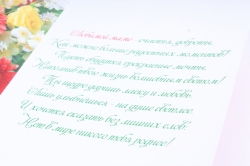 Любимой маме - счастья, доброты,
Как можно больше радостных моментов!
Пусть сбудутся прекрасные мечты,
Наполнив твою жизнь волшебным светом!
Ты щедро даришь ласку и любовь,
Лишь улыбнёшься - на душе светлее.
И хочется сказать без лишних слов:
Нет в мире никого тебя роднее!